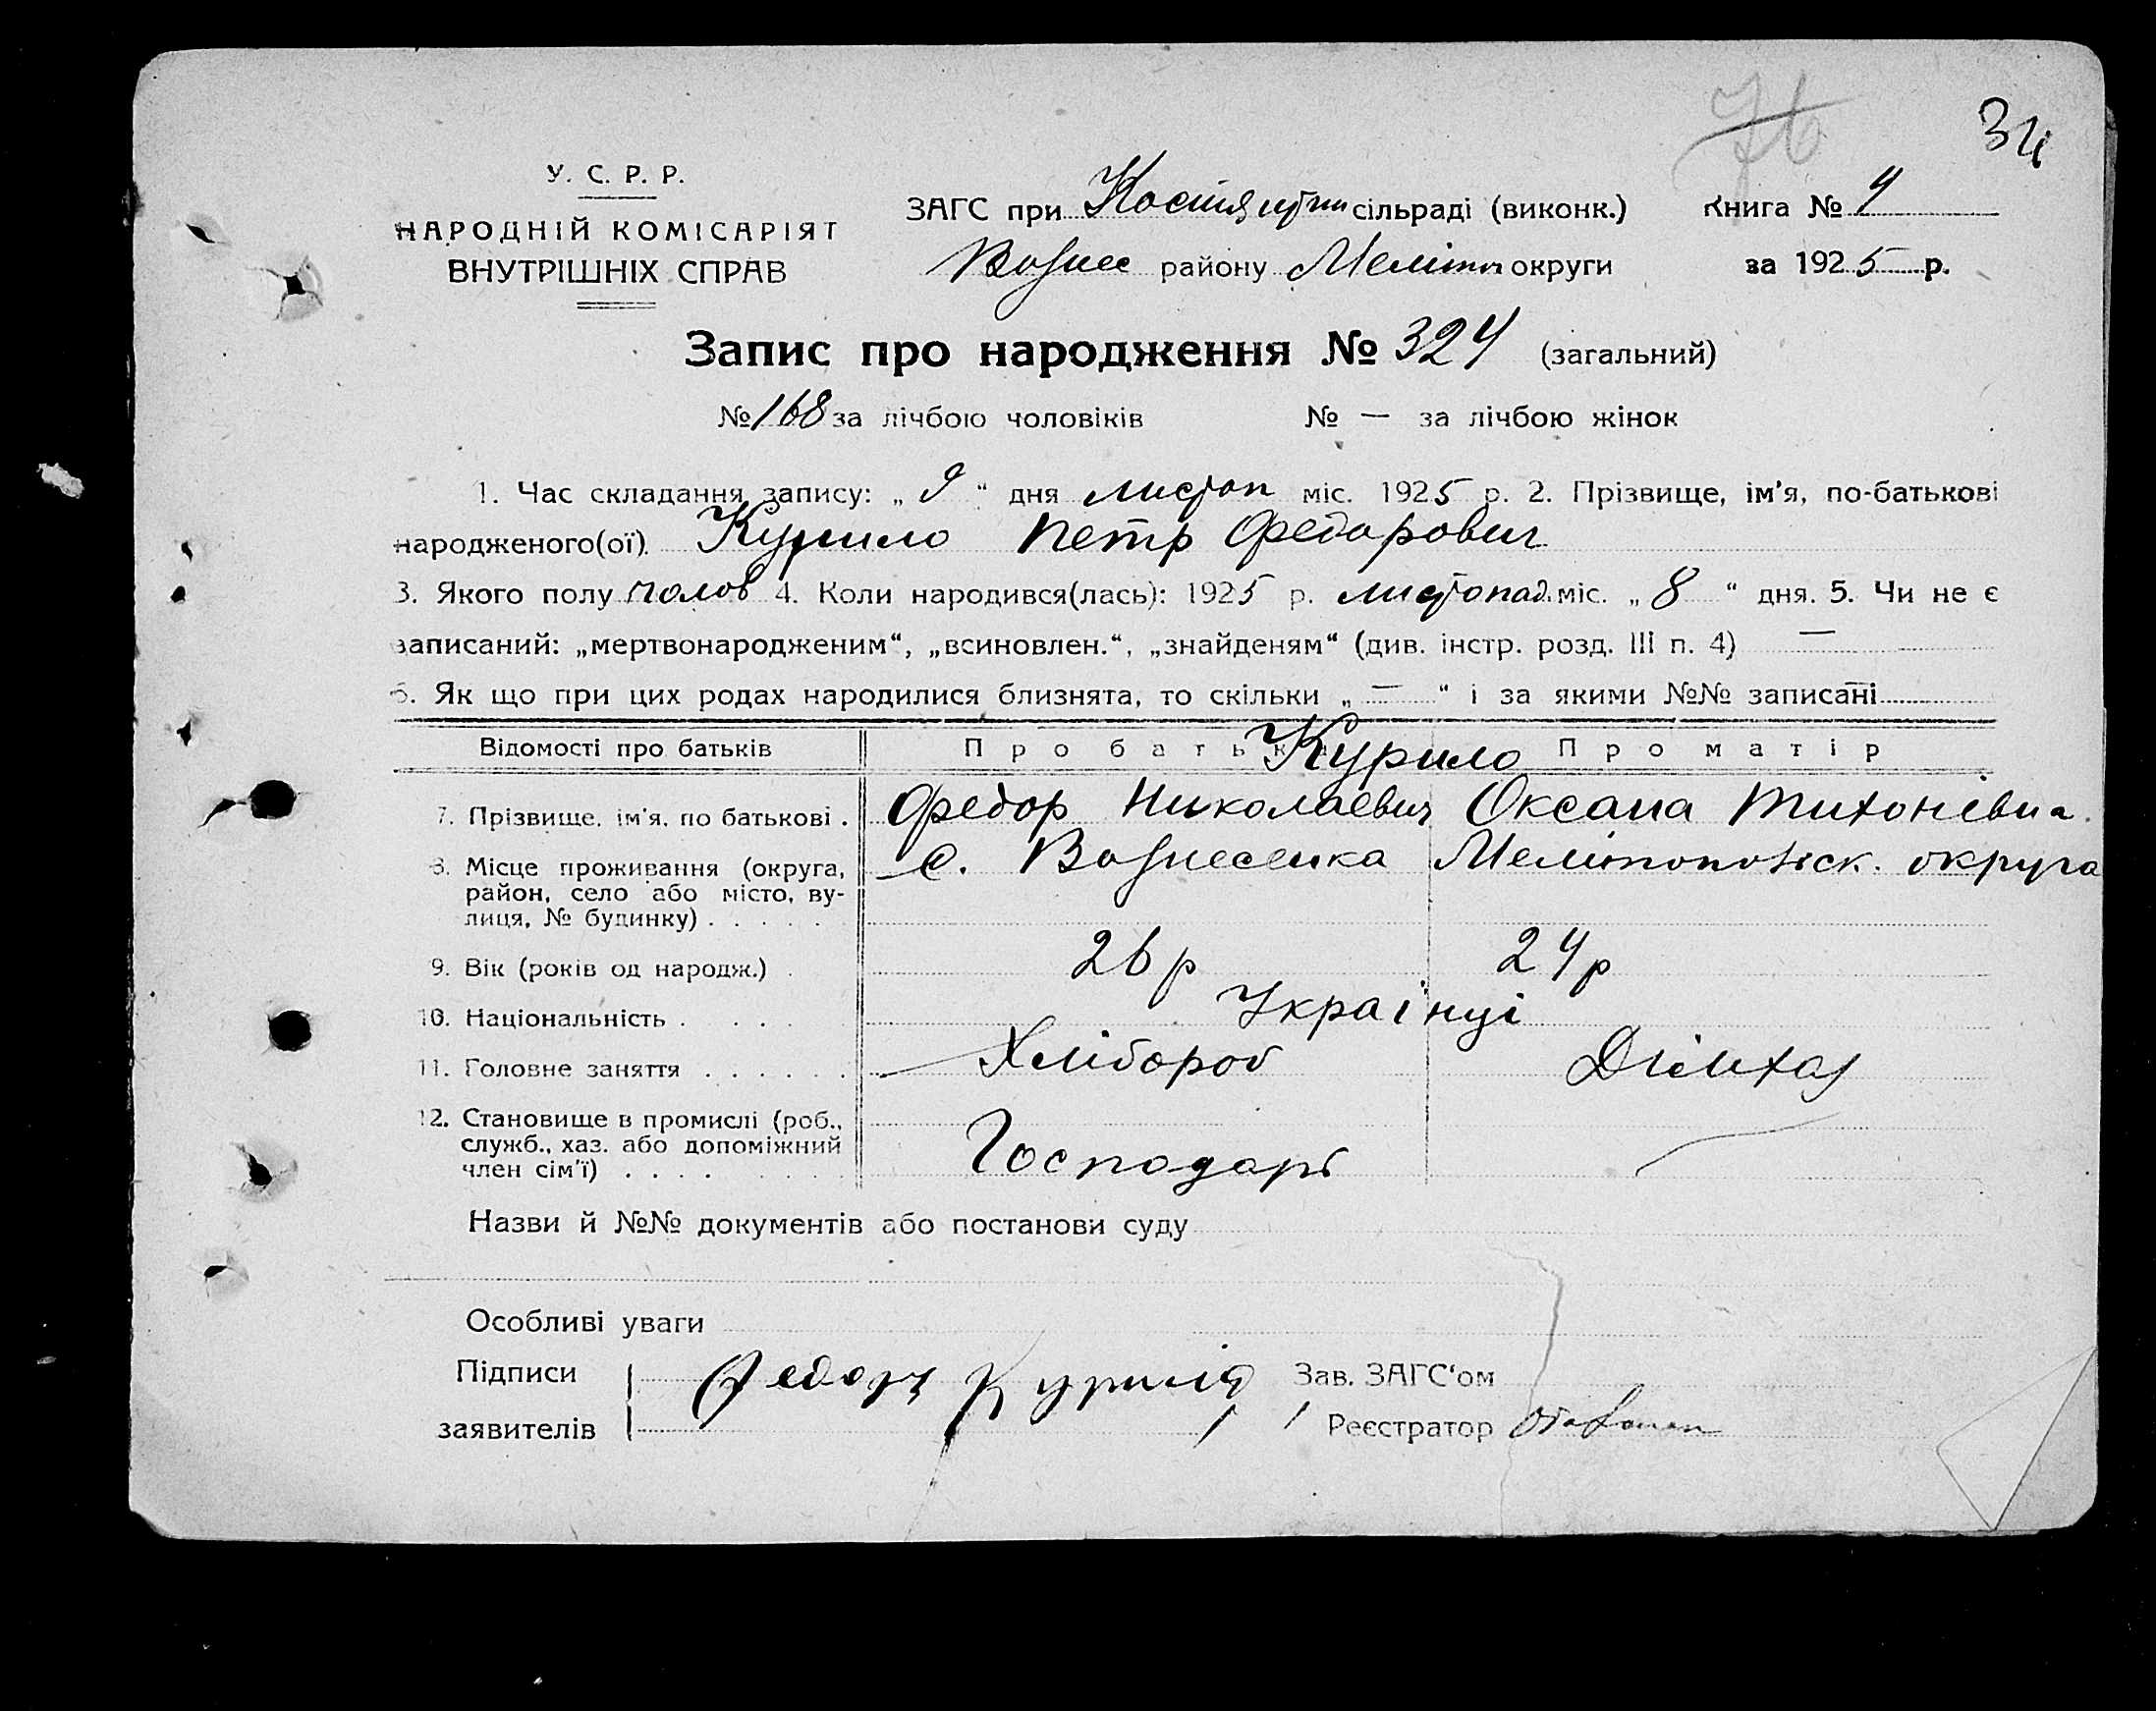 76
34
У. С. Р. Р.
НАРОДНІЙ КОМІСАРІЯТ
ВНУТРІШНІХ СПРАВ
ЗАГС при сільраді (виконк.)
Вознес району Меліто округи
Книга № 4
за 1925 р.
Запис про народження № 324 (загальний)
№ 168 за лічбою чоловіків № — за лічбою жінок
1. Час складання запису: „ 9 “ дня листоп міс. 1925 р. 2. Прізвище, ім'я, по-батькові
народженого(ої) Курило Петр Федорович
3. Якого полу чолов 4. Коли народився(лась): 1925 р. листопад. міс. „ 8 “ дня. 5. Чи не є
записаний: „мертвонародженим“, „всиновлен.“, „знайденям“ (див. інстр. розд. III п. 4) —
6. Як що при цих родах народилися близнята, то скільки „ — “ і за якими №№ записані —
Відомості про батьків Про батька Курило Про матір
7. Прізвище, ім'я, по батькові . Федор Николаевич Оксана Тихонівна
8. Місце проживання (округа, район, село або місто, вулиця, № будинку) . . . . . с. Вознесенка Мелітопольск. округа
9. Вік (років од народж.) . 26 р 24 р
10. Національність . . . . Українці
11. Головне заняття . . . . . . Хлібороб
12. Становище в промислі (роб., служб., хаз. або допоміжний член сім'ї) . . . . Господарь —
Назви й №№ документів або постанови суду
Особливі уваги
Підписи Федор Зав. ЗАГС'ом
заявителів Реєстратор